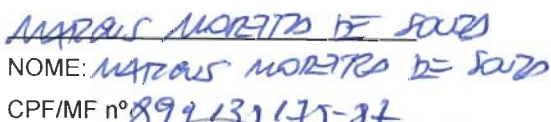 MARCUS MOREIRA DE SOUZA
NOME: MARCUS MOREIRA DE SOUZA
CPF/MF nº